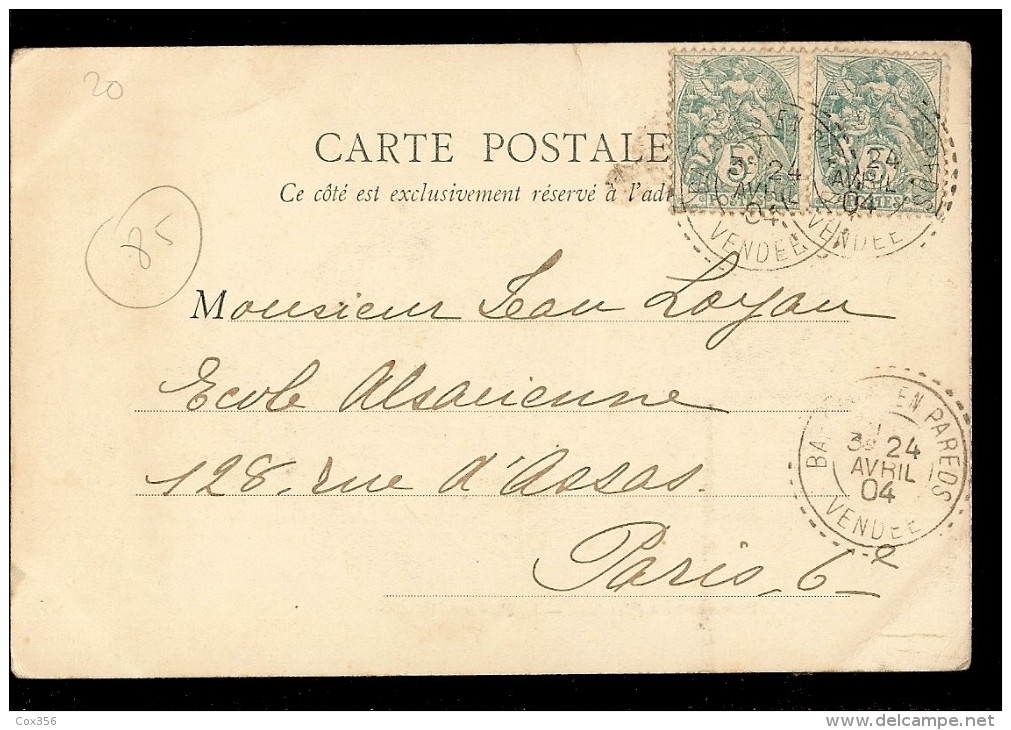 20
CARTE POSTALE
Ce côté est exclusivement réservé à l'adr
85
3e 24
AVRIL
04
VENDEE
24
AVRIL
04
VENDEE
Monsieur Jean Loyau
Ecole Alsacienne
128. rue d'Assas.
Paris, 6e
EN PAREDS
3e 24
AVRIL
04
VENDEE
Cox356
delcampe.net